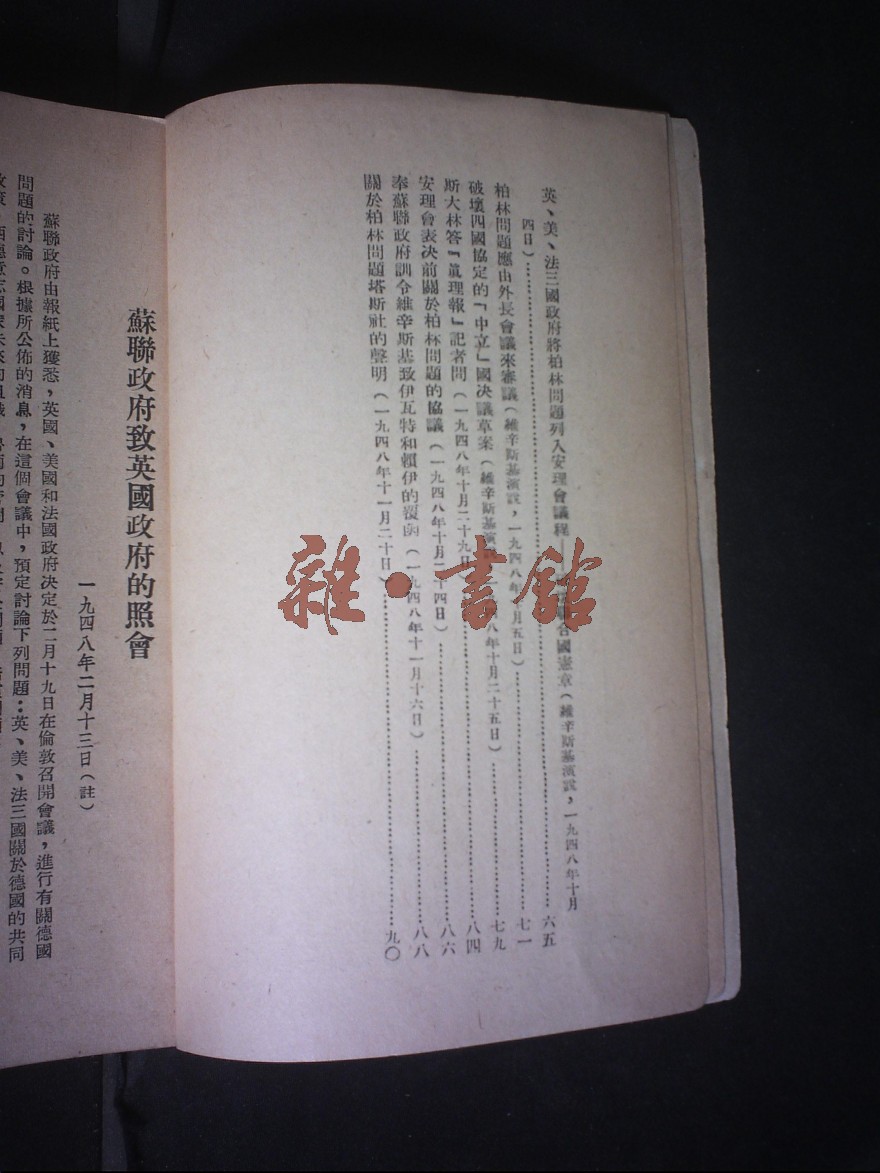 英、美、法三國政府將柏林問題列入安理會議程——聯合國憲章(維辛斯基演說,一九四八年十月
四日)……六五
柏林問題應由外長會議來審議(維辛斯基演說,一九四八年十月五日)……七一
破壞四國協定的「中立」國決議草案(維辛斯基演說,一九四八年十月二十五日)……七九
斯大林答「眞理報」記者問(一九四八年十月二十九日)……八四
安理會表決前關於柏林問題的協議(一九四八年十月二十四日)……八六
奉蘇聯政府訓令維辛斯基致伊瓦特和賴伊的覆函(一九四八年十一月十六日)……八八
關於柏林問題塔斯社的聲明(一九四八年十一月二十日)……九〇
蘇聯政府致英國政府的照會
一九四八年二月十三日(註)
蘇聯政府由報紙上獲悉,英國、美國和法國政府決定於二月十九日在倫敦召開會議,進行有關德國
問題的討論。根據所公佈的消息,在這個會議中,預定討論下列問題:英、美、法三國關於德國的共同
雜·書館